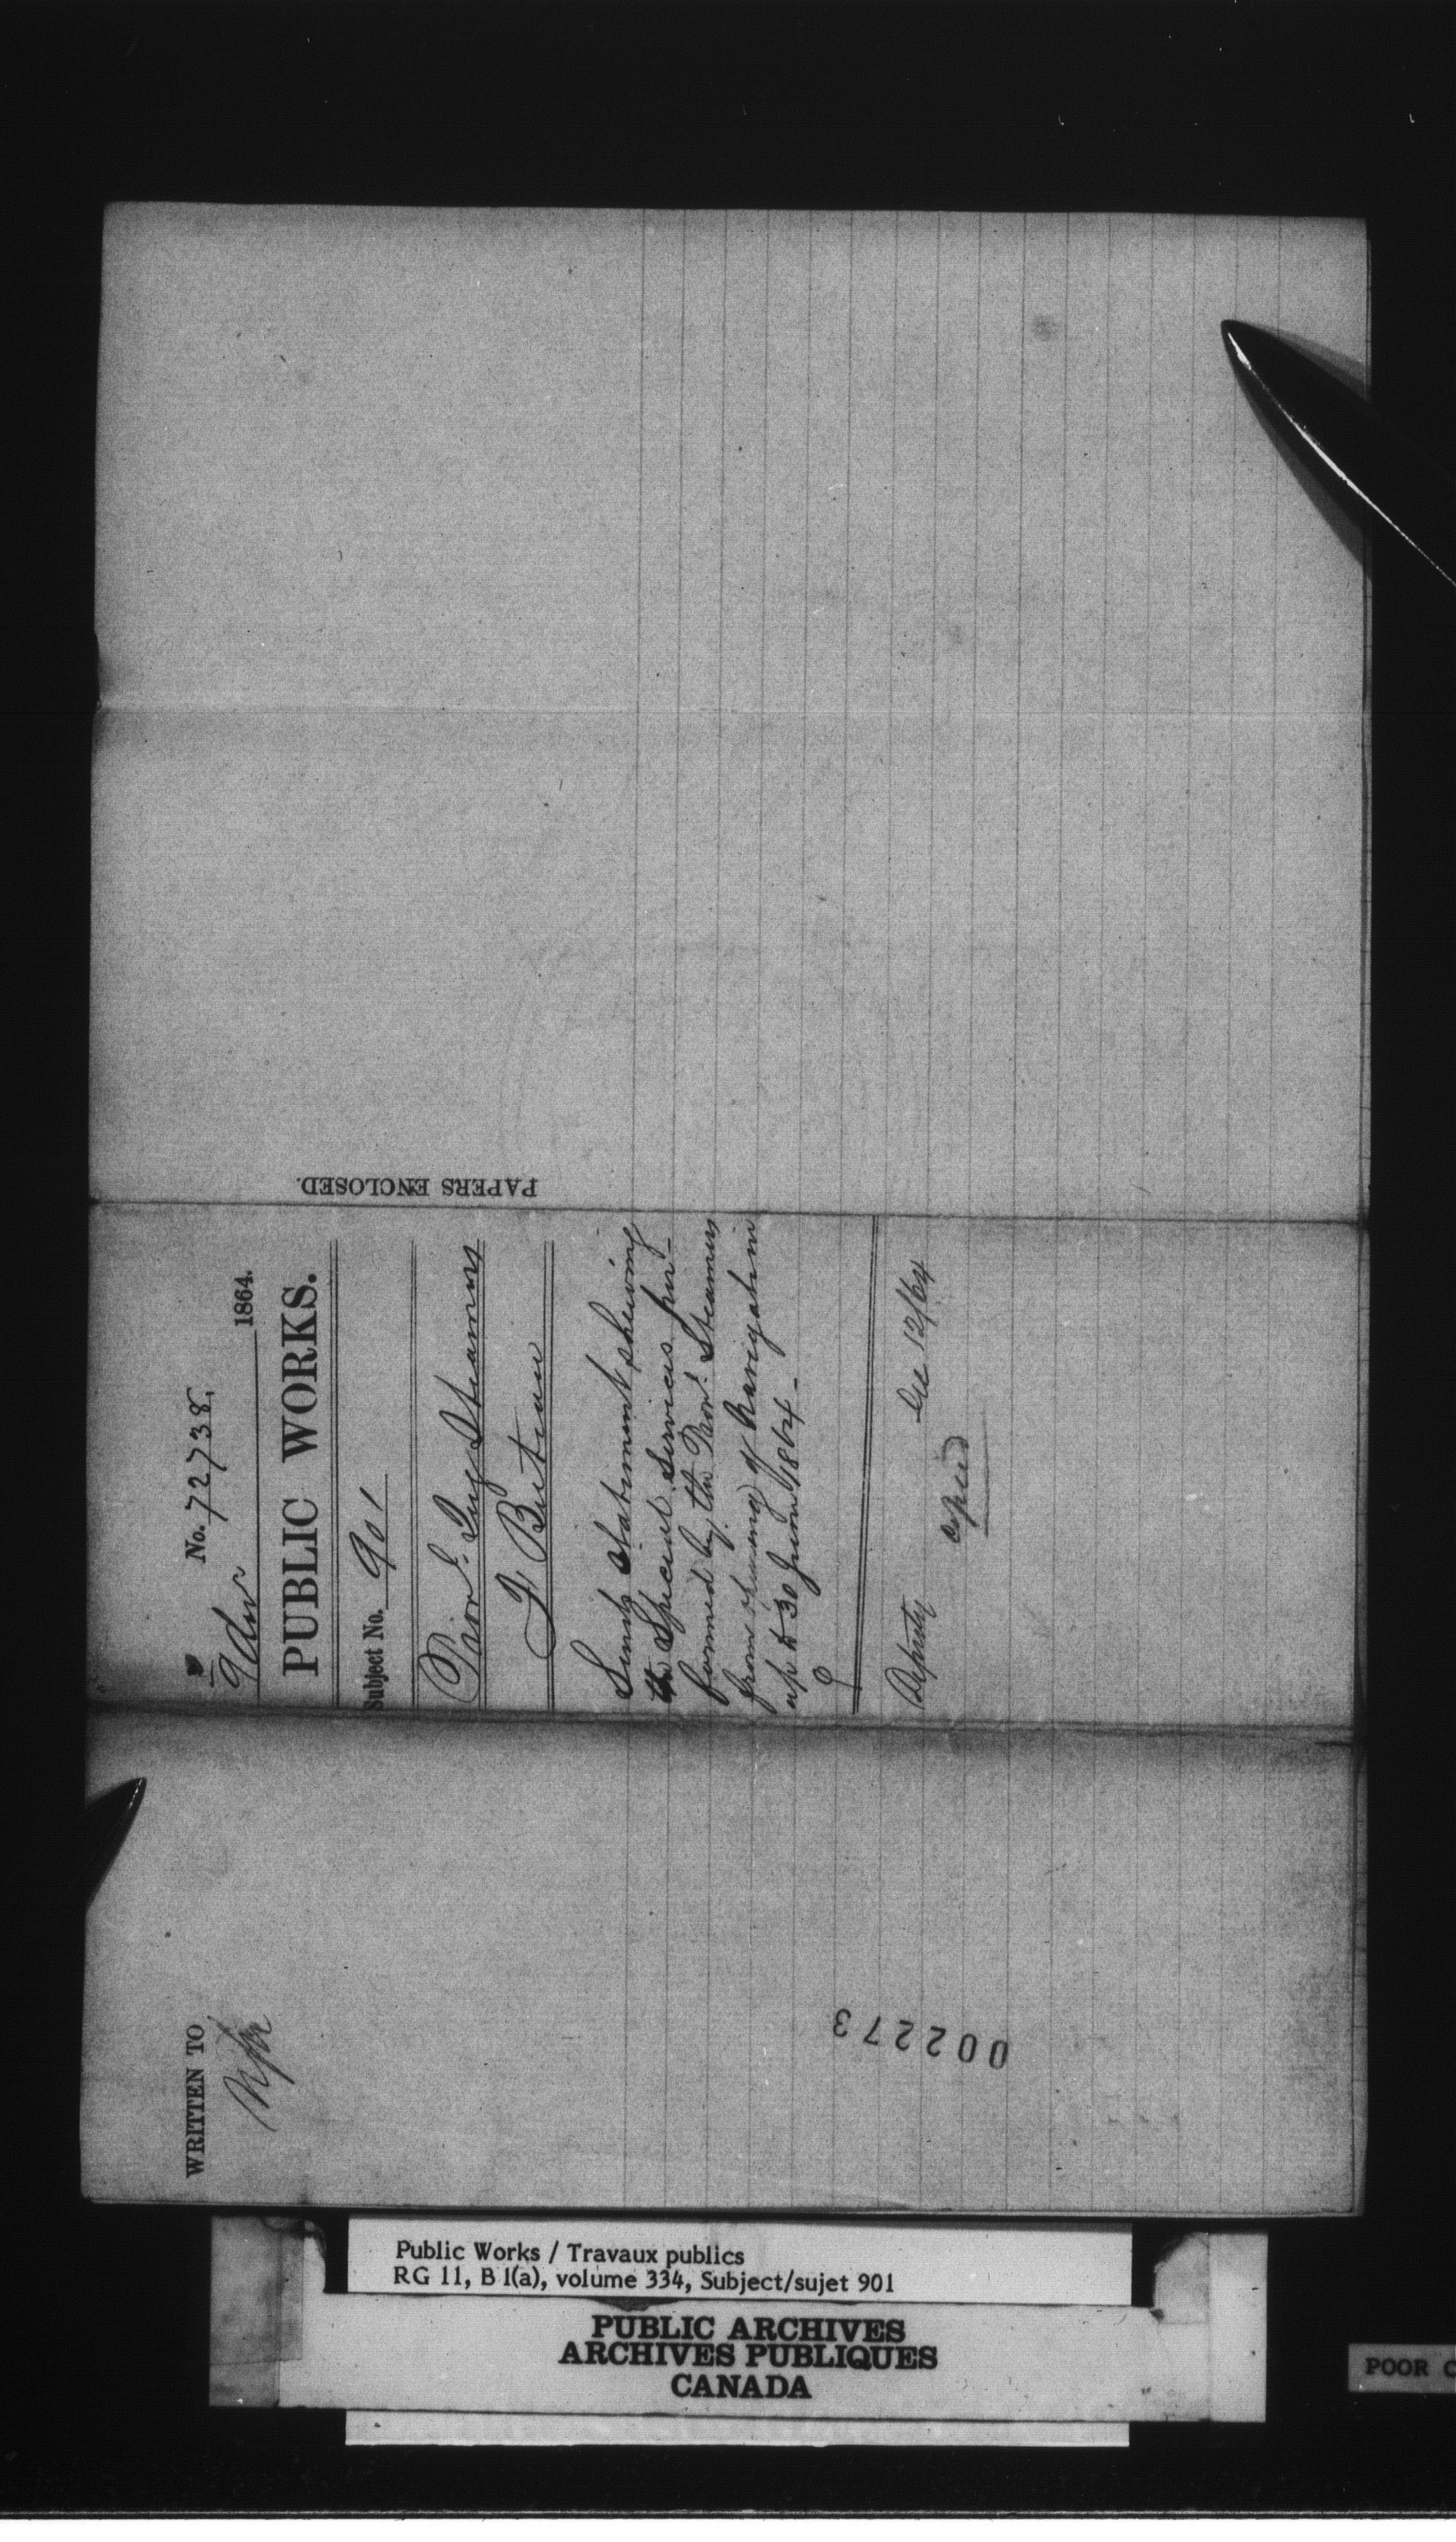 No. 72738.
9 Dec 1864.
PUBLIC WORKS.
Subject No. 901
Provl. Tug Steamers
F Buteau
Sends statement shewing
the Special Services per-
formed by the Provl. Steamers
from opening of Navigation
up to 30 June 1864 -
Deputy Dec 12/64
copied
PAPERS ENCLOSED.
WRITTEN TO
002273
Public Works / Travaux publics
RG 11, B 1(a), volume 334, Subject/sujet 901
PUBLIC ARCHIVES
ARCHIVES PUBLIQUES
CANADA
POOR C